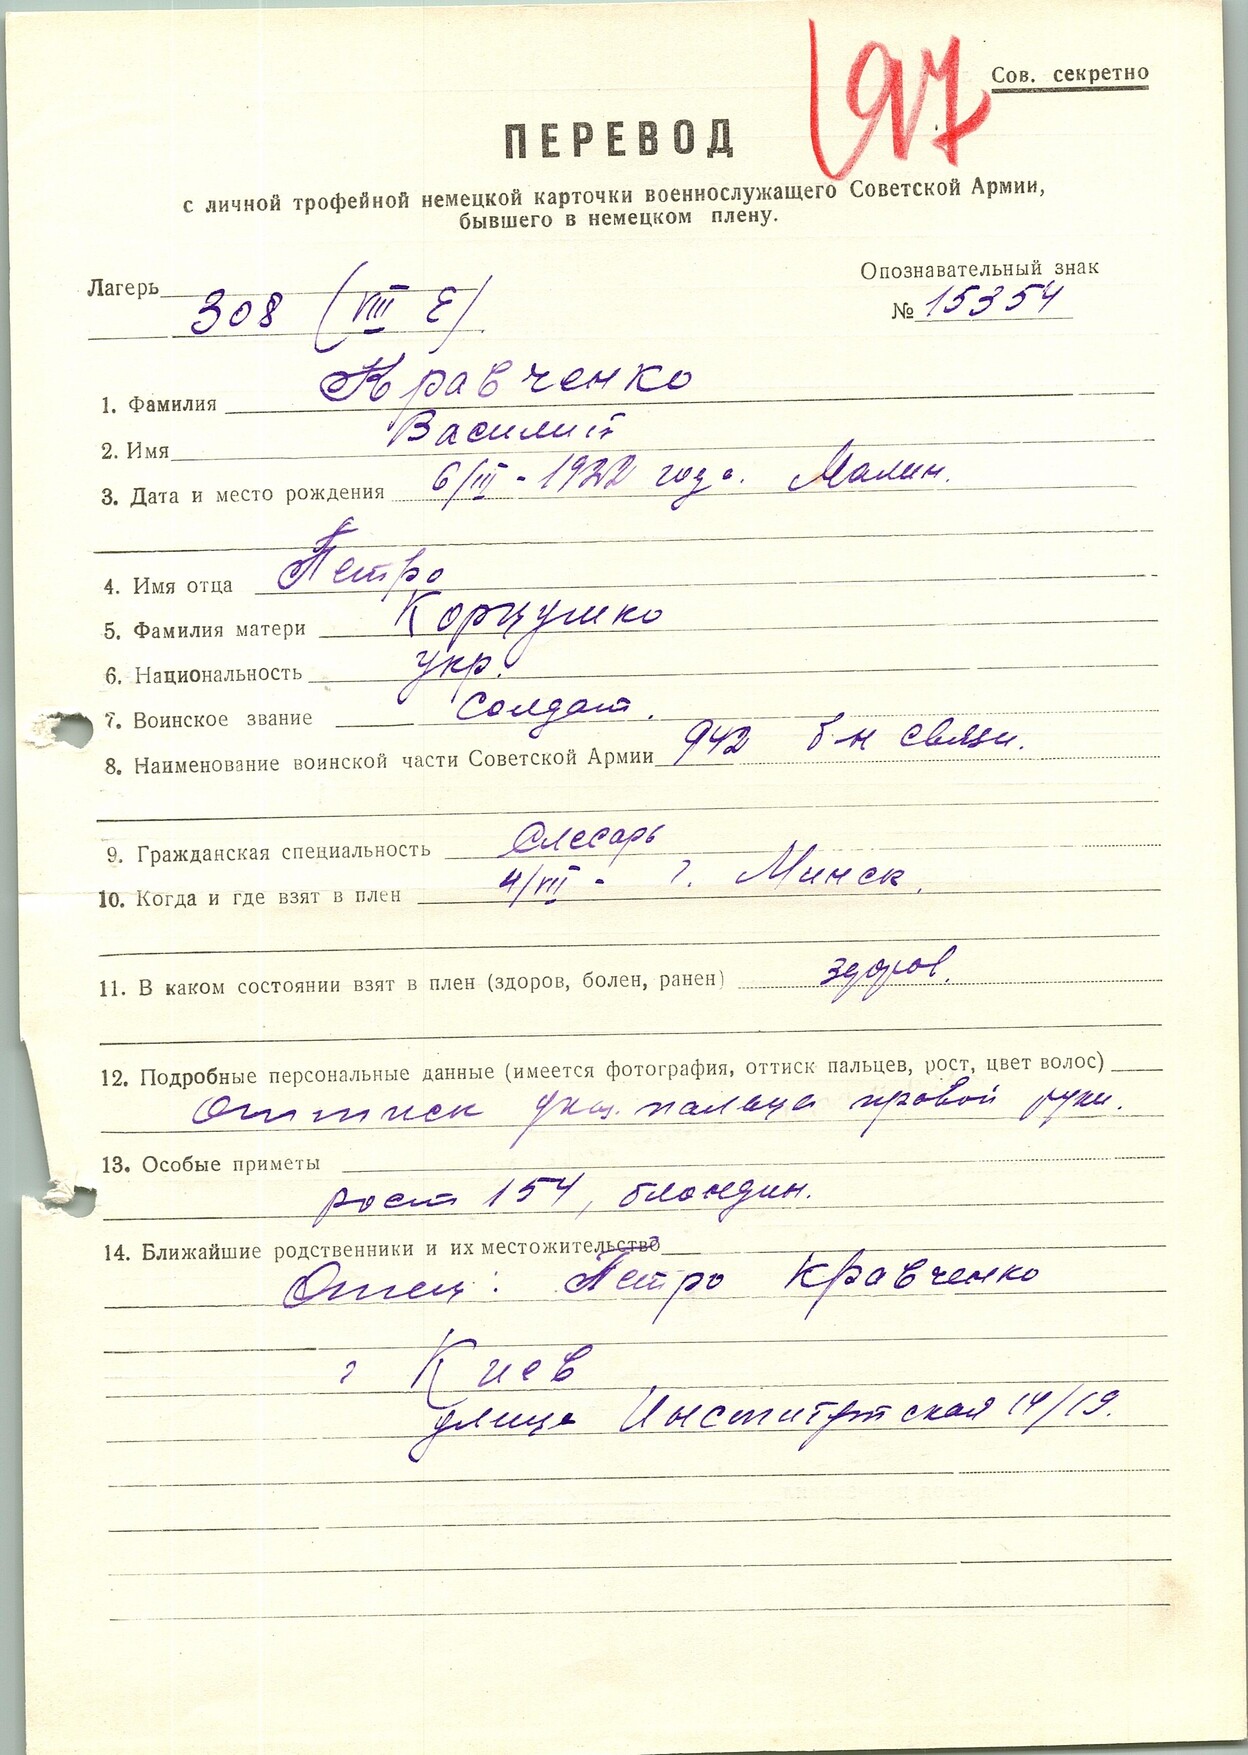 197
Сов. секретно
ПЕРЕВОД
с личной трофейной немецкой карточки военнослужащего Советской Армии,
бывшего в немецком плену.
Лагерь 308 (VIII E)
Опознавательный знак
№ 15354
1. Фамилия Кравченко
2. Имя Василий
3. Дата и место рождения 6/III - 1922 года. Малин.
4. Имя отца Петро
5. Фамилия матери
6. Национальность укр.
7. Воинское звание Солдат.
8. Наименование воинской части Советской Армии 942 б-н связи.
9. Гражданская специальность Слесарь
10. Когда и где взят в плен 4/VII - г. Минск.
11. В каком состоянии взят в плен (здоров, болен, ранен) здоров.
12. Подробные персональные данные (имеется фотография, оттиск пальцев, рост, цвет волос)
Оттиск указ. пальца правой руки.
13. Особые приметы
рост 154, блондин.
14. Ближайшие родственники и их местожительство
Отец: Петро Кравченко
г Киев
улица Институтская 14/19.